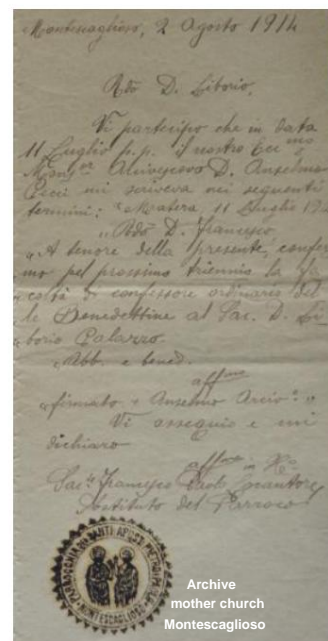 Montescaglioso, 2 Agosto 1914
Rdo D. Liborio,
Vi partecipo che in data
11 Luglio p.p. il nostro Ecc.mo
Mons.or Arcivescovo D. Anselmo
Pecci mi scriveva nei seguenti
termini: "Matera, 11 Luglio
"Rdo D. Francesco
"A tenore della presente, confer
mo pel prossimo triennio la fa
coltà di confessore ordinario del
le Benedettine al Sac. D. Li
"borio Palazzo
"Abb. e bened.
affmo
"firmato + Anselmo Arciv.o "
Vi ossequio e mi
dichiaro
affmo in
Sac. Francesco Paolo
Sostituto del Parroco
MONTESCAGLIOSO
Archive
mother church
Montescaglioso